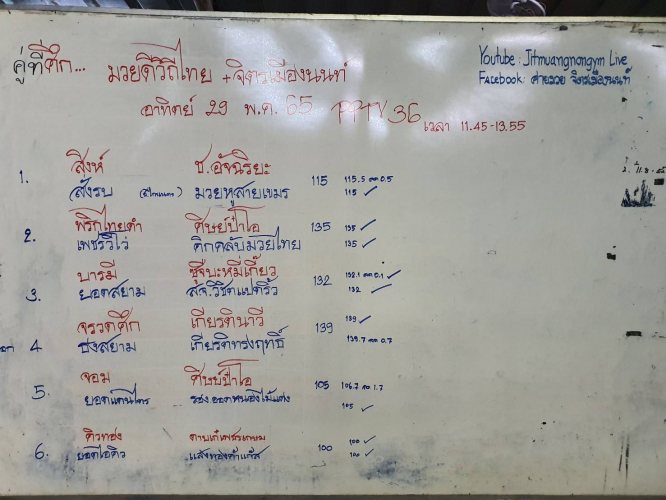 คู่ที่ศึก... มวยดีวิถีไทย + จิตรเมืองนนท์
Youtube: Jitmuangnongym Live
Facebook: ค่ายมวย จิตรเมืองนนท์
อาทิตย์ 29 พ.ค. 65 PPTV 36 เวลา 11.45-13.55
1. สิงห์ ช.อัจฉริยะ 115 115.5 ลด 0.5
สั่งรบ มวยหูสายเขมร 115 ✓
2. พริกไทยดำ ศิษย์ป๋าโอ 135 135 ✓
เพชรวิไว คิกคลับมวยไทย 135 ✓
3. บารมี ซุ้จิบะหมี่เกี๊ยว 132 132.1 ลด 0.1 ✓
ยอดสยาม ส.จ.วิชิตแปดริ้ว 132 ✓
4 จรวดศึก เกียรตินาวี 139 139 ✓
ชงสยาม เกียรติทรงฤทธิ์ 139.7 ลด 0.7
5. จอม ศิษย์ป๋าโอ 105 106.7 ลด 1.7
ยอดแดนไตร 105 ✓
6. คิวทอง ดาบเก๋เพชรเกษม 100 100 ✓
ยอดไอคิว แสงทองค้าแก๊ส 100 ✓